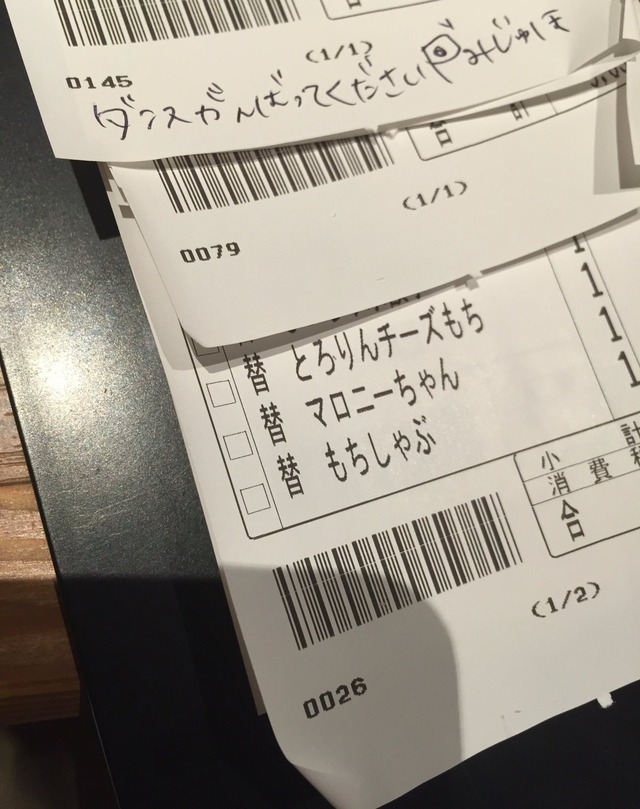 (1/1)
0145
ダンスがんばってください
合 計
(1/1)
0079
1
替 とろりんチーズもち 1
替 マロニーちゃん 1
替 もちしゃぶ 1
小 計
消 費 税
合
(1/2)
0026